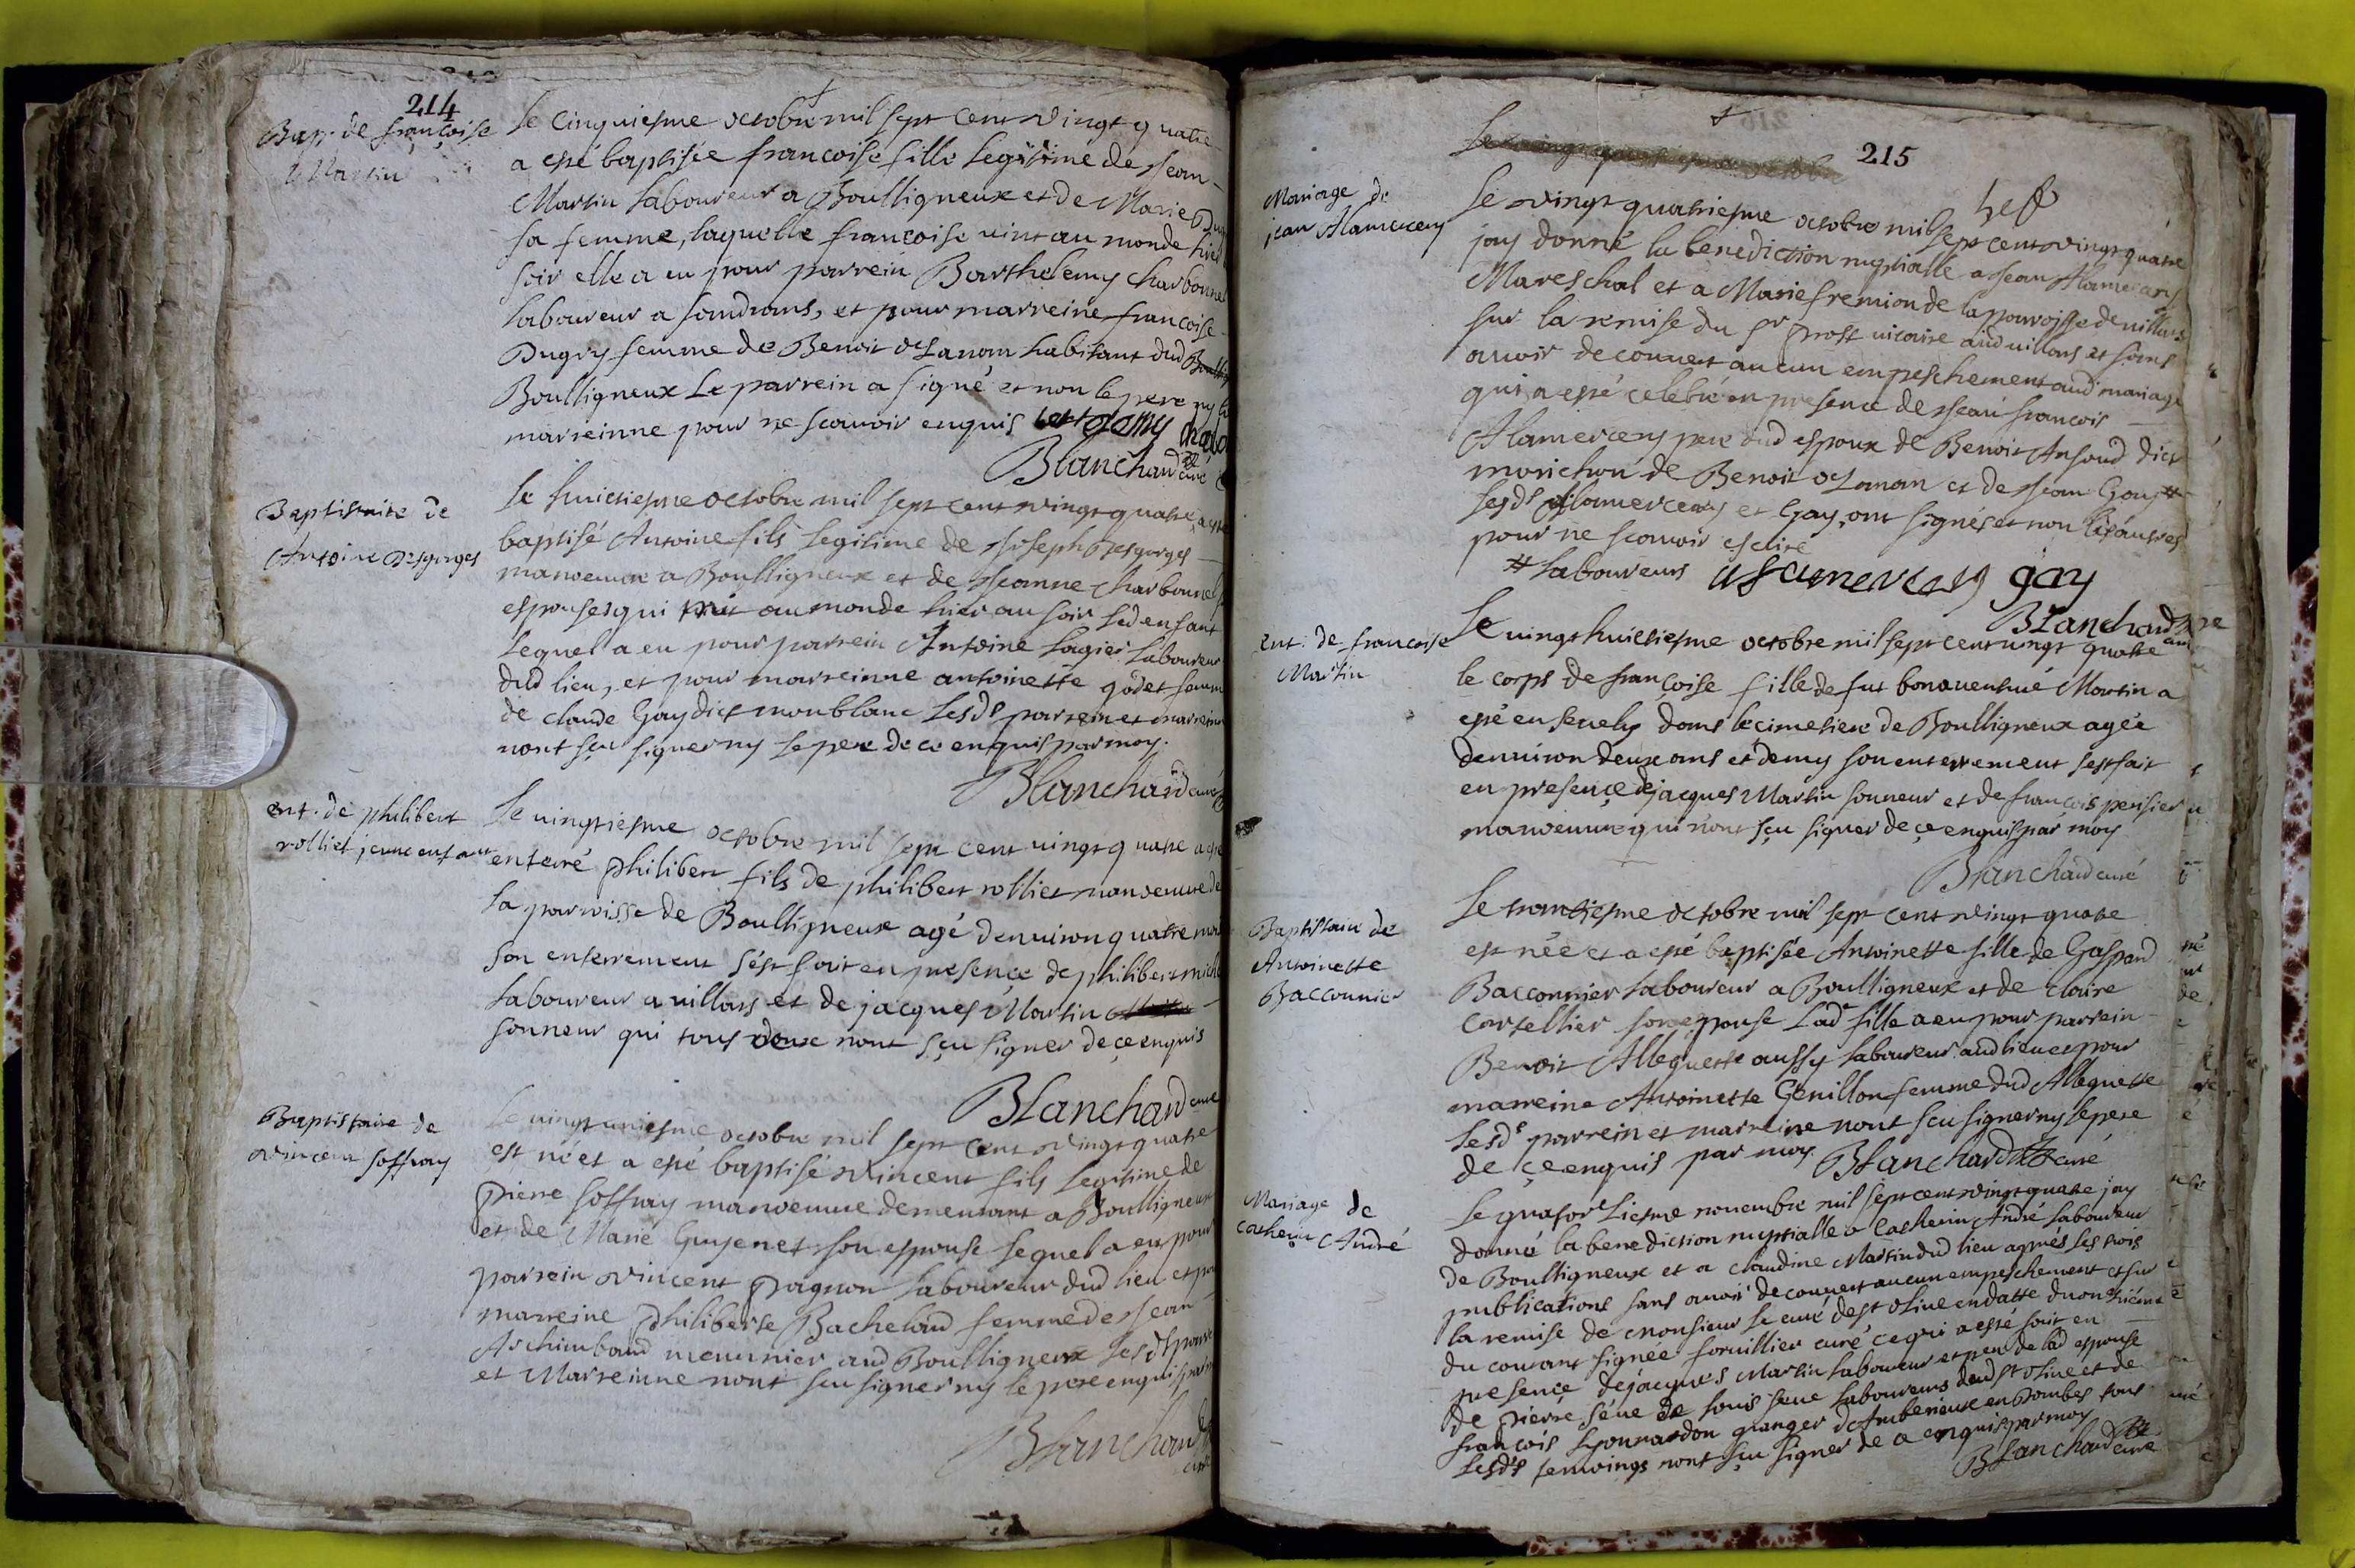 214
Bap. de françoise
Martin
Le cinquiesme octobre mil sept cent vingt quatre
a esté baptisée francoise fille legitime de Jean
Martin laboureur a Boulligneux et de Marie
sa femme, laquelle francoise vint au monde hier
soir elle a eu pour parrein Barthelemy charbonne
laboureur a sandrans, et pour marreine francoise
Dugry femme de Benoit delanom habitant dud
Boulligneux Le parrein a signé et non le pere ny la
marreinne pour ne scavoir enquis
Blanchard curé
Baptistaire de
Antoine Desgorges
Le huictiesme octobre mil sept cent vingt quatre a esté
baptisé Antoine fils legitime de Joseph Desgorges
manoeuvre a Boulligneux et de Jeanne charbonnel
espouses qui mit au monde hier au soir led enfant
lequel a eu pour parrein Antoine Lagier laboureur
dud lieu, et pour marreinne antoinette godet femm
de claude Gay dict monblanc Lesds parrein et marreinn
nont sçu signer ny le pere de ce enquis par moy.
Blanchard curé
ent. de philibert
rolliet jeune enfant
Le vingtiesme octobre mil sept cent vingt quatre a esté
enterré philibert fils de philibert rolliet manoeuvre de
la parroisse de Boulligneux agé denviron quatre moi
son enterrement sést fait en presençe de philibert mich
laboureur a villars et de jacques Martin
sonneur qui tous deux nont sçu signer de çe enquis
Blanchard curé
Baptistaire de
vincent soffray
Le vingt uniesme octobre mil sept cent vingt quatre
est né et a esté baptisé vincent fils legitime de
Pierre soffray manoeuvre demeurant a Boulligneux
et de Marie Guyenet son espouse lequel a eu pour
parrein vincent Pagnon laboureur dud lieu et po
marreine Philiberte Bachelard femme de Jean
Archimbaud meunnier aud Boulligneux Lesds parre
et Marreinne nont sçu signer ny le pere enquis par m
Blanchard
curé
215
Mariage de
jean Alamercery
Le vingt quatriesme octobre mil sept cent vingt quatre
jay donné la benediction nuptialle a Jean Alamercery
Mareschal et a Marie fremion de la parroisse de villars
sur la remise du sr prost vicaire aud villars et sans
avoir decouvert aucun empeschement aud mariage
qui a esté celebré en presence de Jean francois
Alamercery pere dud espoux de Benoit Ansoud dict
morichon de Benoit delanan et de Jean Gay #
lesds Alamercery et Gay, ont signés et non les autres
pour ne scavoir escrire
# laboureurs alamercery gay
Blanchard curé
ent. de francoise
Martin
Le vingt huictiesme octobre mil sept cent vingt quatre
le corps de françoise fille de fut bonaventure Martin a
esté ensevely dans le cimetiere de Boulligneux agée
denviron deux ans et demy son enterrement sest fait
en presençe de jacques Martin sonneur et de françois perisier
manoeuvre qui nont sçu signer de çe enquis par moy
Blanchard curé
Baptistaire de
Antoinette
Bacconnier
Le trantiesme octobre mil sept cent vingt quatre
est née et a esté baptisée Antoinette fille de Gaspard
Bacconnier laboureur a Boulligneux et de claire
Cortellier son espouse Lade fille a eu pour parrein
Benoit Allegrette aussy laboureur aud lieu et pour
marreine Antoinette Genillon femme dud Allegrette
Lesds parrein et marreine nont sçu signer ny le pere
de çe enquis par moy. Blanchard curé
Mariage de
catherin André
Le quatorziesme novembre mil sept cent vingt quatre jay
donné la benediction nuptialle a Catherin André laboureur
de Boulligneux et a claudine Martin dud lieu apprés les trois
publications sans avoir decouvert aucun empeschement et sur
la remise de monsieur le curé de st olive en datte du onziéme
du courant signée forvillier curé ce qui a esté fait en
presençe de jacques Martin laboureur et pere de lad espouse
de pierre séve de louis seve laboureurs dud st olive et de
françois Lyonnardon granger d Amberieux en Dombes tous
Lesds temoings nont sçu signer de ce enquis par moy
Blanchard curé